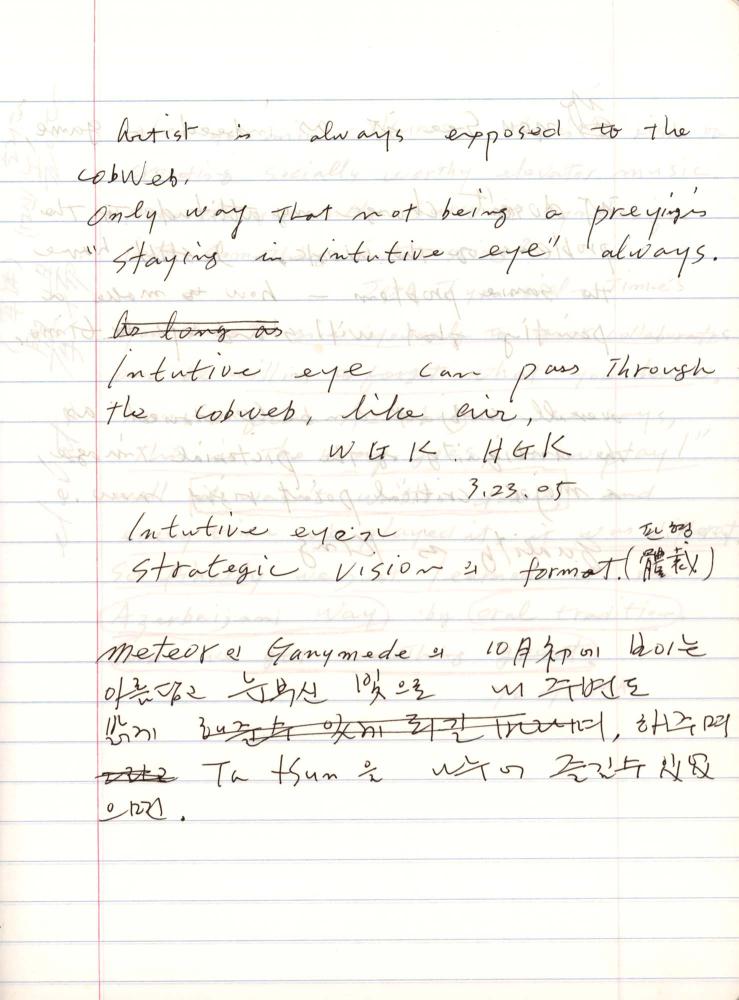 Artist is always exposed to the
cobweb.
Only way that not being a preying is
"Staying in intutive eye" always.
As long as
Intutive eye can pass through
the cobweb, like air,
W G K. H G K
3.23.05
Intutive eye가
판형
Strategic vision의 format.(體裁)
meteor인 Ganymede의 10月初에 보이는
아름답고 눈부신 빛으로 내 주변도
밝게 하주며
Ta tsun을 나누어 즐길수 있었
으면.